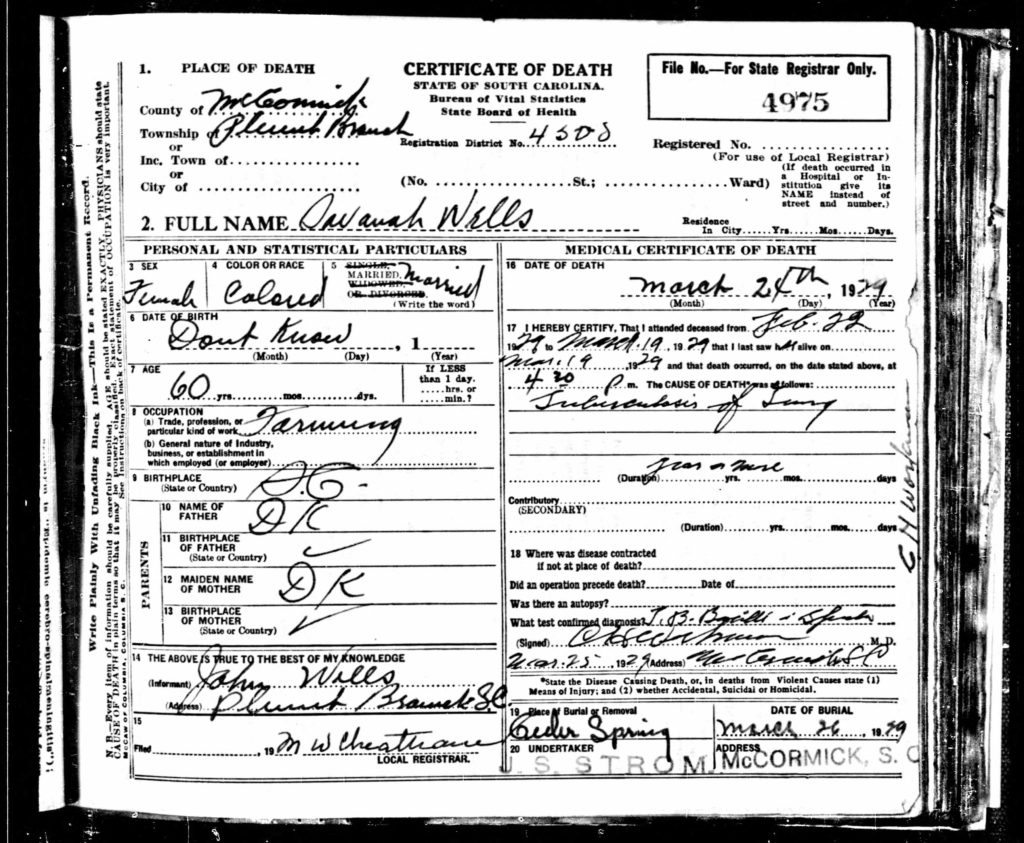 1. PLACE OF DEATH
County of McCormick
Township of Plum Branch
or
Inc. Town of
or
City of
CERTIFICATE OF DEATH
STATE OF SOUTH CAROLINA.
Bureau of Vital Statistics
State Board of Health
Registration District No. 4508
(No. St.; Ward)
File No.—For State Registrar Only.
4975
Registered No.
(For use of Local Registrar)
(If death occurred in
a Hospital or In-
stitution give its
NAME instead of
street and number.)
2. FULL NAME Savanah Wells
Residence
In City Yrs. Mos. Days.
PERSONAL AND STATISTICAL PARTICULARS
3 SEX
Female
4 COLOR OR RACE
Colored
5 SINGLE,
MARRIED, Married
WIDOWED,
OR DIVORCED.
(Write the word)
6 DATE OF BIRTH
Dont Know , 1
(Month) (Day) (Year)
7 AGE
60 yrs. mos. dys.
If LESS
than 1 day.
hrs. or
min.?
8 OCCUPATION
(a) Trade, profession, or
particular kind of work Farming
(b) General nature of Industry,
business, or establishment in
which employed (or employer)
9 BIRTHPLACE
(State or Country) S.C.
PARENTS
10 NAME OF
FATHER DK
11 BIRTHPLACE
OF FATHER
(State or Country)
12 MAIDEN NAME
OF MOTHER DK
13 BIRTHPLACE
OF MOTHER
(State or Country)
14 THE ABOVE IS TRUE TO THE BEST OF MY KNOWLEDGE
(Informant) John Wells
(Address) Plum Branch S.C.
15
Filed , 19 M W Cheatham
LOCAL REGISTRAR.
MEDICAL CERTIFICATE OF DEATH
16 DATE OF DEATH
March 24th, 1929
(Month) (Day) (Year)
17 I HEREBY CERTIFY, That I attended deceased from Feb. 22
1929 to March 19, 1929 that I last saw her alive on
Mar. 19, 1929 and that death occurred, on the date stated above, at
4 30 P m. The CAUSE OF DEATH* was as follows:
Tuberculosis of Lung
year or more
(Duration) yrs. mos. days
Contributory
(SECONDARY)
(Duration) yrs. mos. days
18 Where was disease contracted
if not at place of death?
Did an operation precede death? Date of
Was there an autopsy?
What test confirmed diagnosis? T.B. Bacilli in Sputum
(Signed) M. D.
Mar. 25, 1929 (Address) McCormick S C
*State the Disease Causing Death, or, in deaths from Violent Causes state (1)
Means of Injury; and (2) whether Accidental, Suicidal or Homicidal.
19 Place of Burial or Removal
Ceder Spring
DATE OF BURIAL
March 26, 1929
20 UNDERTAKER
J. S. STROM
ADDRESS
McCORMICK, S. C.
C H Workman
Write Plainly With Unfading Black Ink—This Is a Permanent Record.
N. B.—Every item of information should be carefully supplied. AGE should be stated EXACTLY. PHYSICIANS should state
CAUSE OF DEATH in plain terms so that it may be properly classified. Exact statement of OCCUPATION is very important.
See Instructions on back of certificate.
McCAW OF COLUMBIA, COLUMBIA S. C.